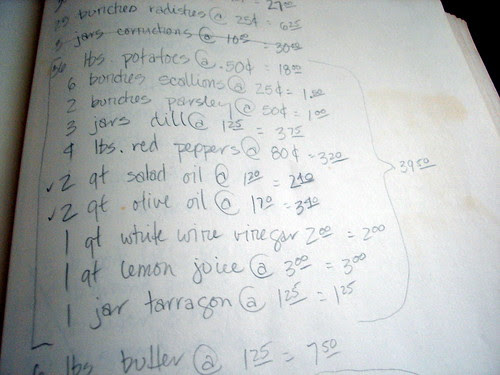 27
25 bunches radishes @ 25¢ = 6 25
3 jars cornichons @ 10 = 30
36 lbs. potatoes @ .50¢ = 18 00
6 bunches scallions @ 25¢ = 1.50
2 bunches parsley @ 50¢ = 1 00
3 jars dill @ 1 25 = 3 75
4 lbs. red peppers @ 80¢ = 3 20
✓2 qt salad oil @ 1 20 = 2 40
✓2 qt olive oil @ 1 70 = 3 40
1 qt white wine vinegar 2 00 = 2 00
1 qt lemon juice @ 3 00 = 3 00
1 jar tarragon @ 1 25 = 1 25
39 50
lbs butter @ 1 25 = 7 50